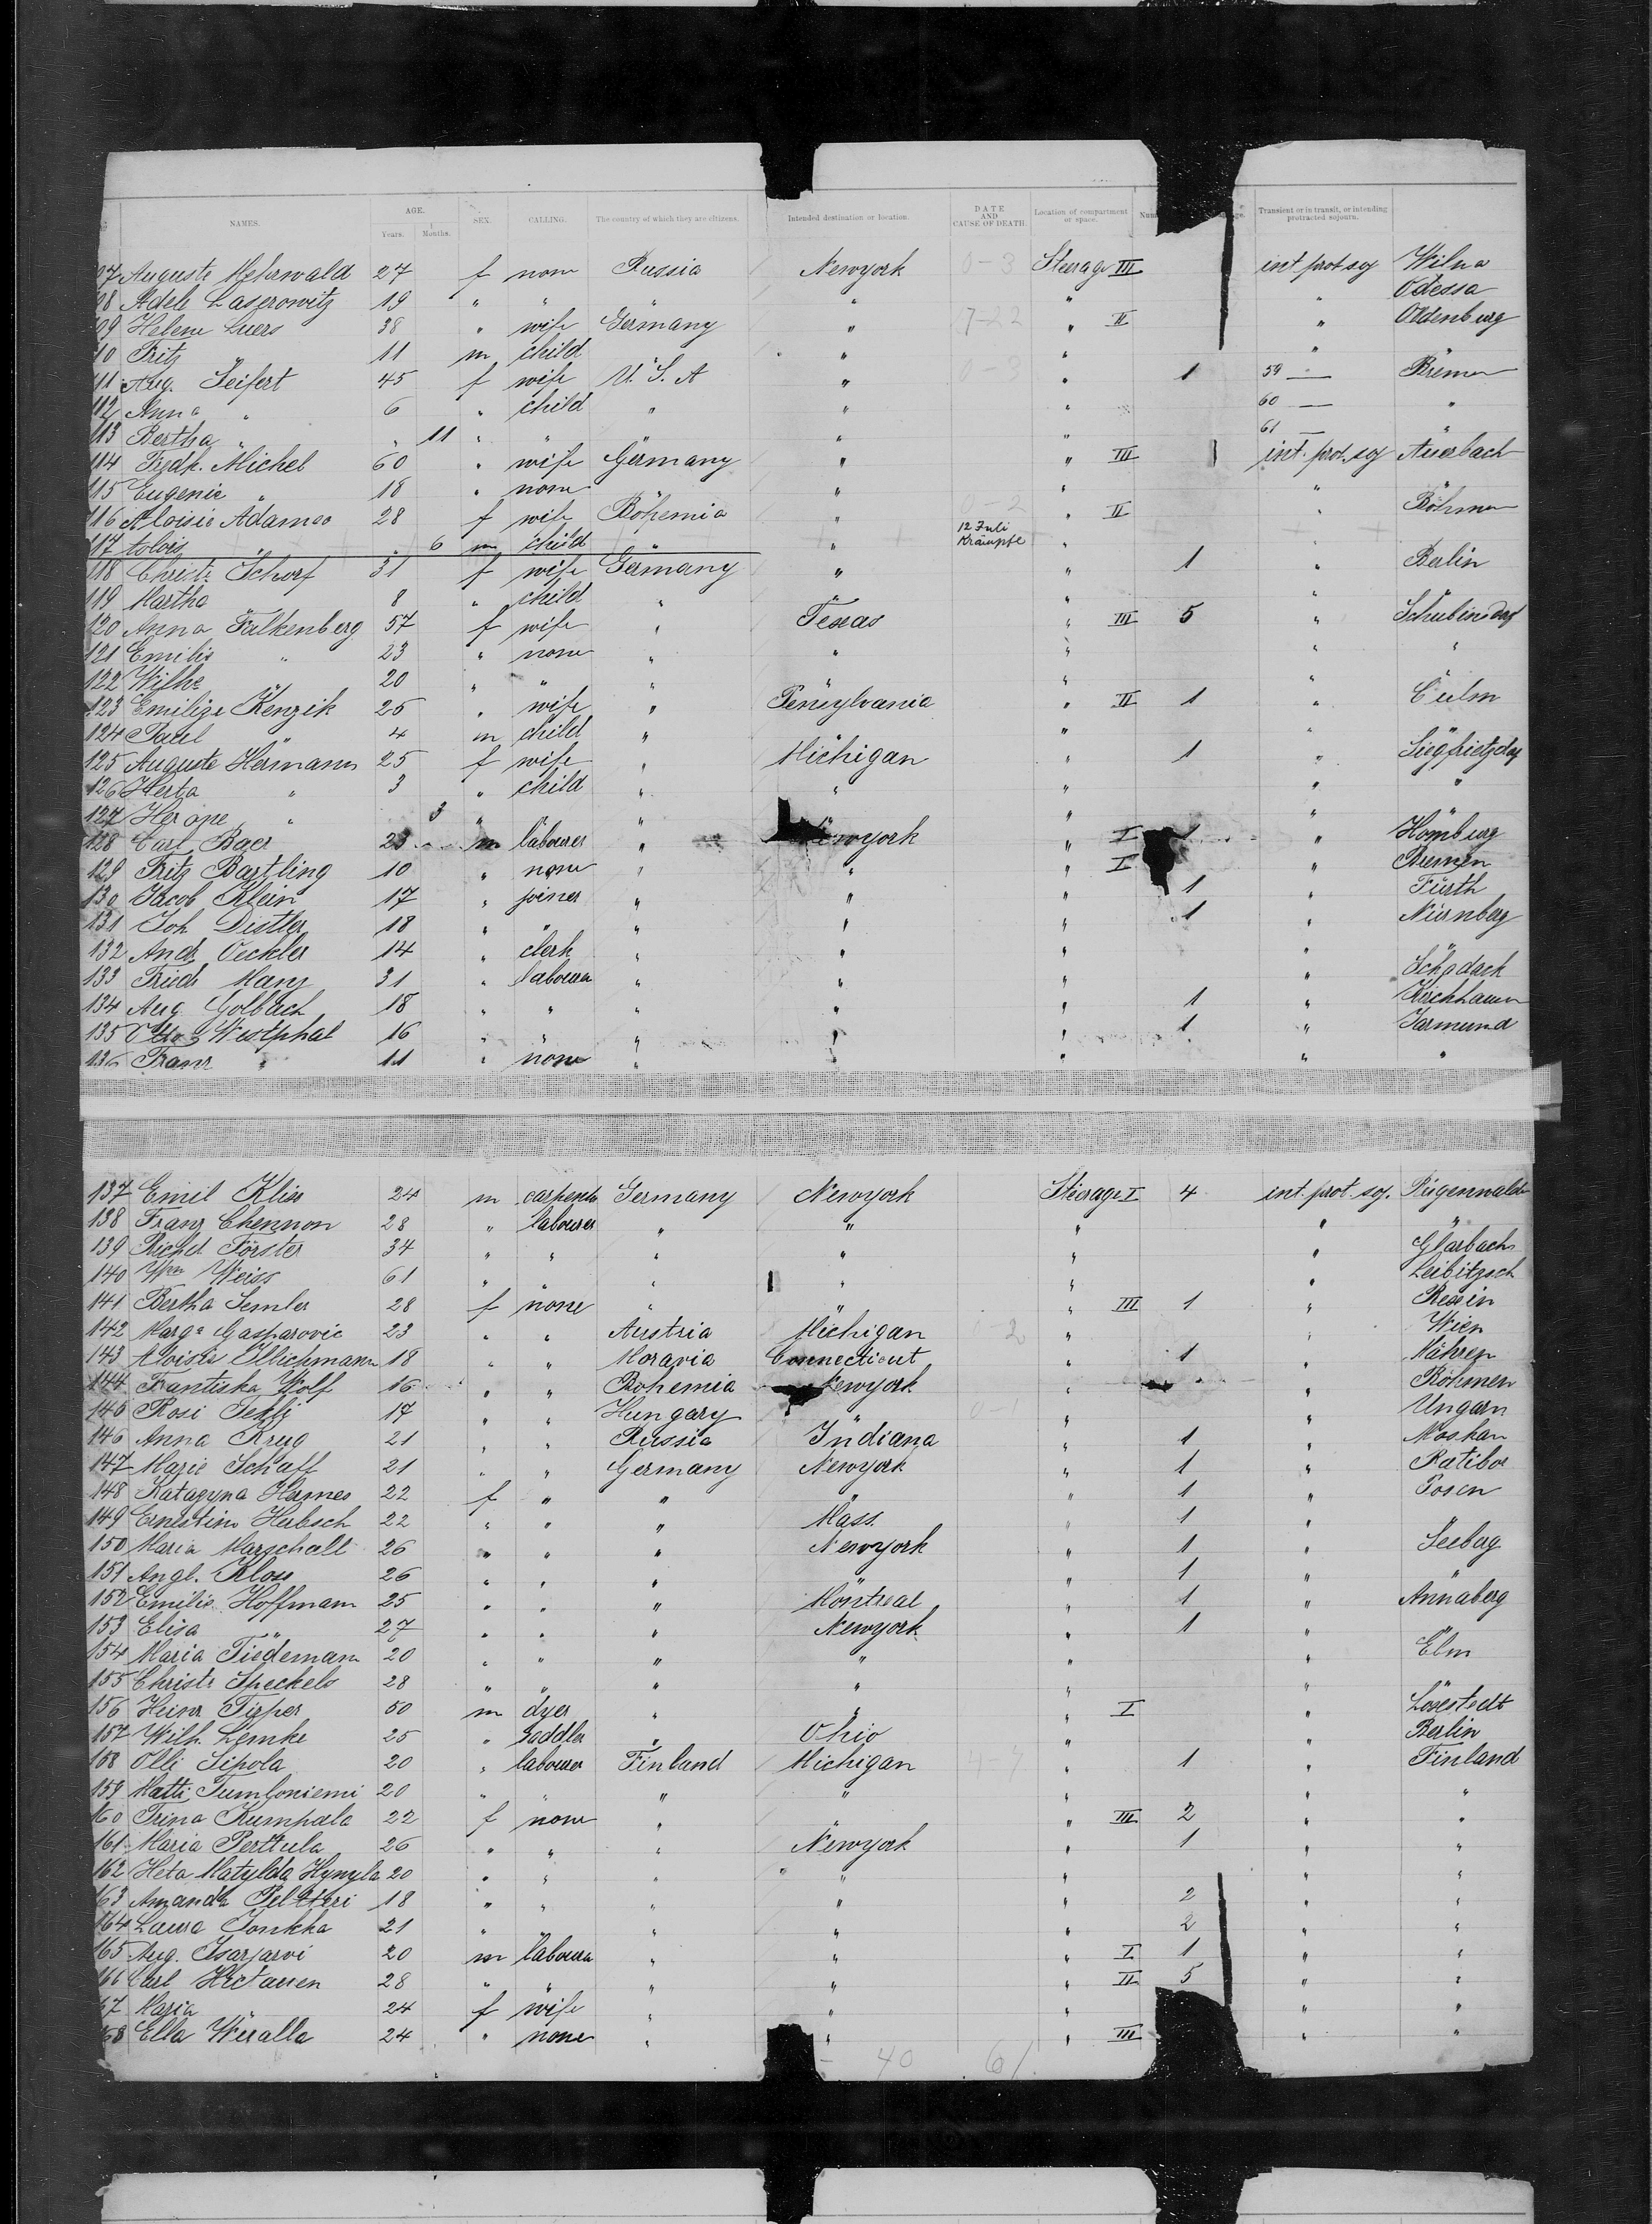 NAMES. AGE. Years. Months. SEX. CALLING. The country of which they are citizens. Intended destination or location. DATE AND CAUSE OF DEATH. Location of compartment or space. Transient or in transit, or intending protracted sojourn.
Auguste Mehrwald 27 f none Russia Newyork 0-3 Steerage III int prot soj Wilna
Adele Laserowitz 19 " " " " " " Odessa
Helene Luers 38 " wife Germany " 7-22 " II " Oldenburg
10 Fritz " 11 m child " " " " "
11 Aug. Seifert 45 f wife U. S. A " 0-3 " 1 59 — Bremen
112 Anna " 6 " child " " " 60 — "
113 Bertha " " 11 " " " " " 61 — "
114 Frzdk. Michel 60 " wife Germany " " III int. prot. soj Auerbach
115 Eugenie " 18 " none " " " " "
116 Aloisie Adamec 28 f wife Böhemia " 0-2 " II " Böhmen
117 Alois " " 6 m child " " 12 Juli Krämpfe " "
118 Christe Scharf 31 f wife Germany " " 1 " Berlin
119 Martha " 8 " child " " " " "
120 Anna Falkenberg 57 f wife " Texas " III 5 "
121 Emilie " 23 " none " " " " "
122 Wilhe " 20 " " " " " " "
123 Emilize Kenzik 25 " wife " Pensylvania " II 1 " Culm
124 Paul " 4 m child " " " " "
125 Auguste Hermann 25 f wife " Michigan " 1 "
126 Herta " 3 " child " " " " "
127 " 3 " " " " " " "
128 Carl Baer 23 m labourer " Newyork " I 1 " Homburg
129 Fritz Bartling 10 " none " " " I " Bremen
130 Jacob Klein 17 " joiner " " " 1 " Fürth
131 Joh Distler 18 " " " " " 1 " Nürnberg
132 Andr Oeckler 14 " clerk " " " " "
133 Friedr Mary 31 " labourer " " " "
134 Aug Golbach 18 " " " " " 1 " Kirchhain
135 Otto Westphal 16 " " " " " 1 " Jarmund
136 Franz " 11 " none " " " " "
137 Emil Klier 24 m carpenter Germany Newyork Steerage I 4 int. prot. soj. Rügenwalde
138 Franz Chennon 28 " labourer " " " " "
139 Richd Förster 34 " " " " " "
140 Wm Weiss 61 " " " " " "
141 Bertha Semler 28 f none " " " III 1 "
142 Marga Gasparovic 23 " " Austria Michigan " " Wien
143 Aloisie Ullichmann 18 " " Moravia Connecticut " 1 " Mähren
144 Frantiska Wolf 16 " " Bohemia Newyork " " Böhmen
145 Rosi 17 " " Hungary " 0-1 " " Ungarn
146 Anna Krug 21 " " Russia Indiana " 1 " Moskau
147 Marie Schaff 21 " " Germany Newyork " 1 " Ratibor
148 Katagyna Hermes 22 f " " " " 1 " Posen
149 Ernestine Habsch 22 " " " Mass. " 1 " "
150 Maria Marschall 26 " " " Newyork " 1 " Seeburg
151 Angl. Kloss 26 " " " " " 1 " "
152 Emilie Hoffmann 25 " " " Montreal " 1 " Annaberg
153 Elisa " 27 " " " Newyork " 1 " "
154 Maria Tiedemann 20 " " " " " " Elm
155 Christe Speckels 28 " " " " " " "
156 Heinr Tieper 50 m dyer " " " I " Loxstedt
157 Wilh. Lemke 25 " saddler " Ohio " " Berlin
158 Olli Sipola 20 " labourer Finland Michigan " 1 " Finland
159 Matti 20 " " " " " " "
160 Trina Kumpala 22 f none " " " III 2 " "
161 Maria Perttula 26 " " " Newyork " 1 " "
162 Heta Matylda Hynyla 20 " " " " " " "
163 Amanda Pelttari 18 " " " " " 2 " "
164 Laura Jonkka 21 " " " " " 2 " "
165 Aug. Isarjarvi 20 m labourer " " " I 1 " "
166 Carl Hietanen 28 " " " " " II 5 " "
67 Maria " 24 f wife " " " " "
68 Ella Wiralla 24 " none " " " III " "
40 61